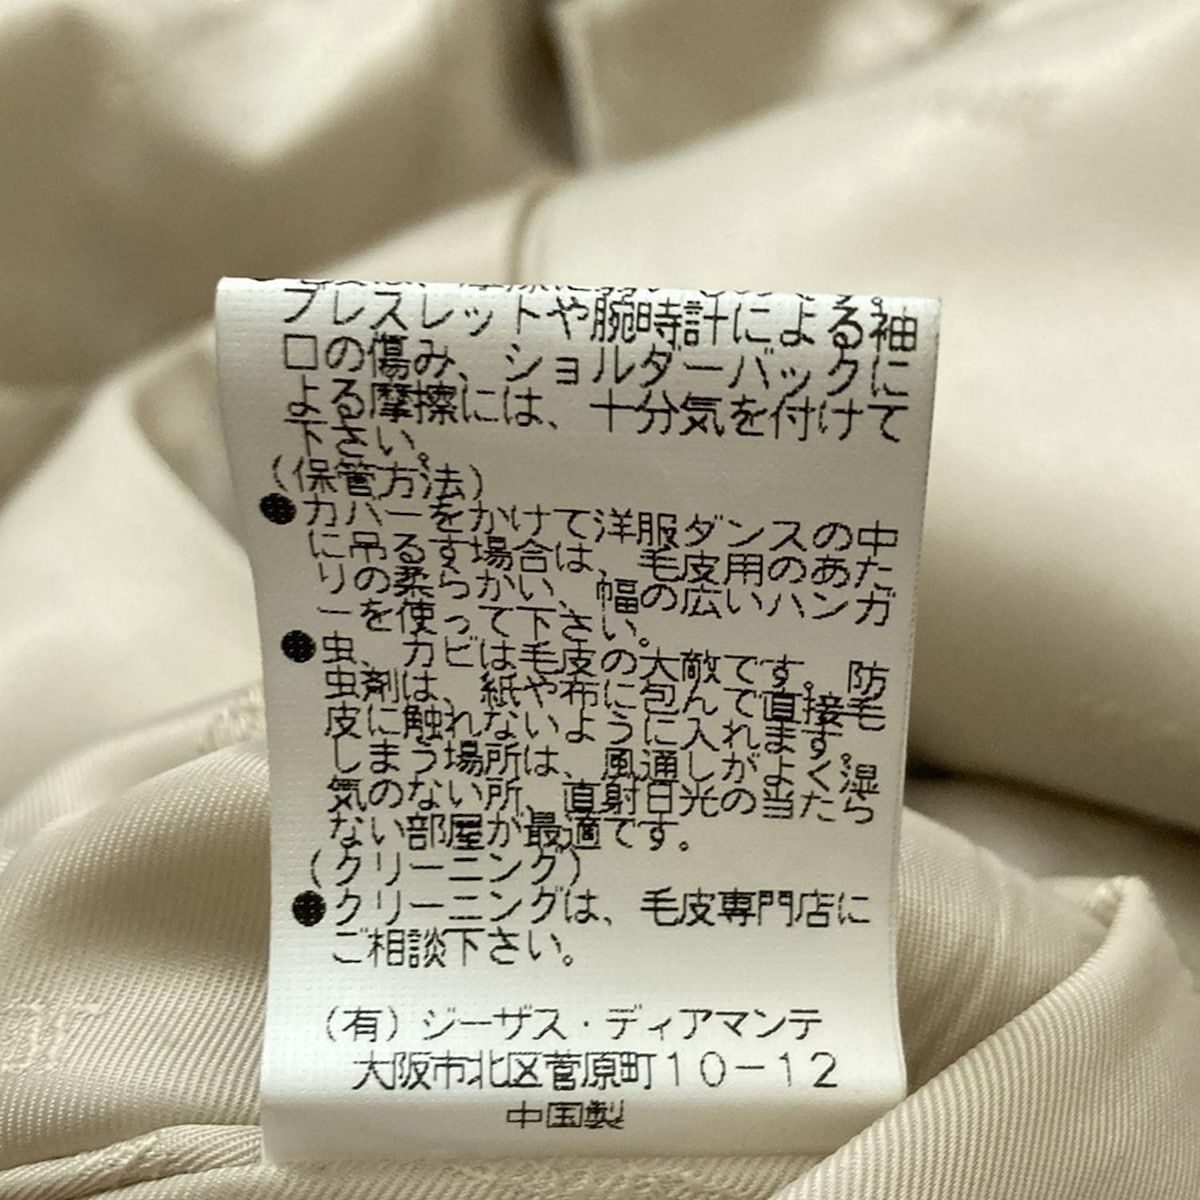 ブレスレットや腕時計による袖
口の傷み、ショルダーバックに
よる摩擦には、十分気を付けて
下さい。
(保管方法)
●カバーをかけて洋服ダンスの中
に吊るす場合は、毛皮用のあた
りの柔らかい、幅の広いハンガ
ーを使って下さい。
●虫、カビは毛皮の大敵です。防
虫剤は、紙や布に包んで直接毛
皮に触れないように入れます。
しまう場所は、風通しがよく湿
気のない所、直射日光の当たら
ない部屋が最適です。
(クリーニング)
●クリーニングは、毛皮専門店に
ご相談下さい。
(有)ジーザス・ディアマンテ
大阪市北区菅原町10-12
中国製